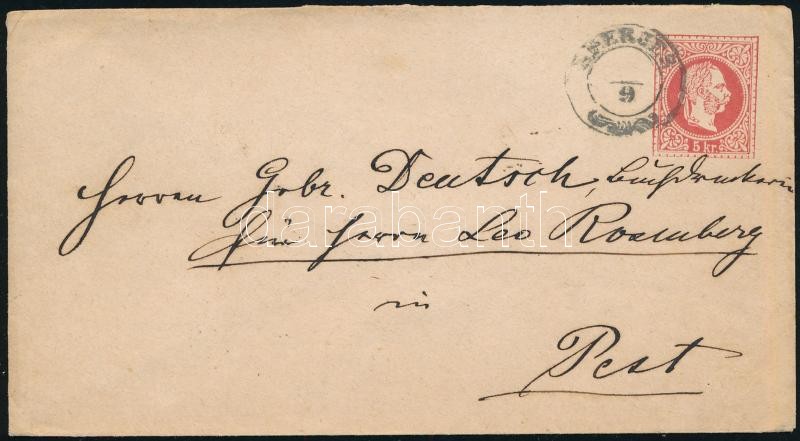 EPERJES
9
5 kr.
Herren Gebr. Deutsch, Buchdruckerin
für Herrn Leo Rosenberg
darabanth
in
Pest